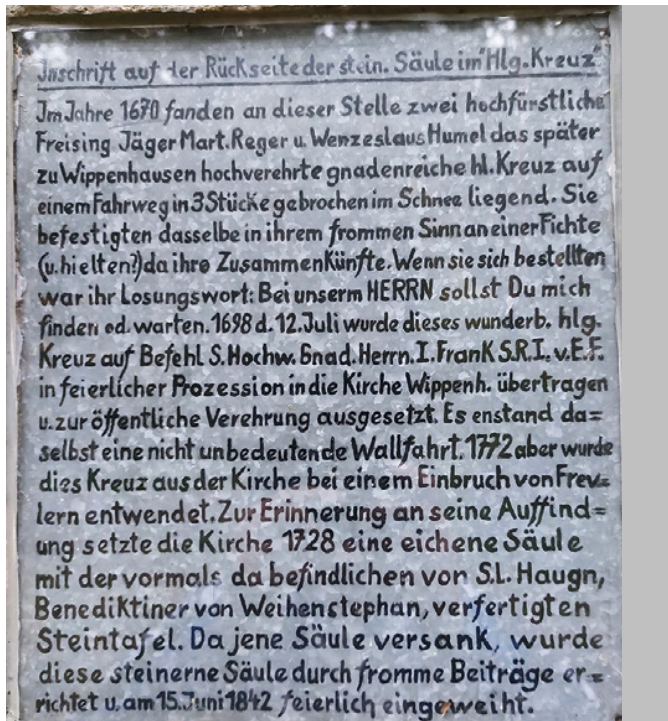 Inschrift auf der Rückseite der stein. Säule im "Hlg. Kreuz"
Im Jahre 1670 fanden an dieser Stelle zwei hochfürstliche
Freising Jäger Mart. Reger u. Wenzeslaus Humel das später
zu Wippenhausen hochverehrte gnadenreiche hl. Kreuz auf
einem Fahrweg in 3 Stücke gebrochen im Schnee liegend. Sie
befestigten dasselbe in ihrem frommen Sinn an einer Fichte
(u. hielten?) da ihre Zusammenkünfte. Wenn sie sich bestellten
war ihr Losungswort: Bei unserm HERRN sollst Du mich
finden od. warten. 1698 d. 12. Juli wurde dieses wunderb. hlg.
Kreuz auf Befehl S. Hochw. Gnad. Herrn. I. Frank S.R.I. v. E.F.
in feierlicher Prozession in die Kirche Wippenh. übertragen
u. zur öffentliche Verehrung ausgesetzt. Es enstand da=
selbst eine nicht unbedeutende Wallfahrt. 1772 aber wurde
dies Kreuz aus der Kirche bei einem Einbruch von Frev=
lern entwendet. Zur Erinnerung an seine Auffind=
ung setzte die Kirche 1728 eine eichene Säule
mit der vormals da befindlichen von S.L. Haugn,
Benediktiner von Weihenstephan, verfertigten
Steintafel. Da jene Säule versank, wurde
diese steinerne Säule durch fromme Beiträge er=
richtet u. am 15. Juni 1842 feierlich eingeweiht.